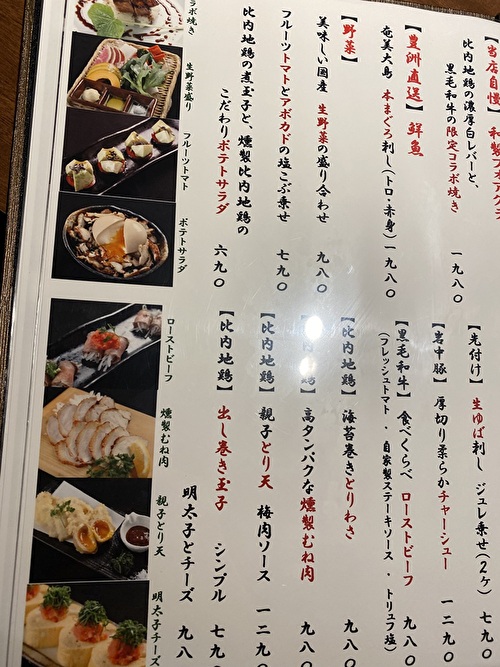 【当店自慢】和製フォアグラ
比内地鶏の濃厚白レバーと、
黒毛和牛の限定コラボ焼き
一九八〇
【豊洲直送】鮮魚
奄美大島 本まぐろ刺し(トロ・赤身)一九八〇
【野菜】
美味しい国産 生野菜の盛り合わせ 九八〇
フルーツトマトとアボカドの塩こぶ乗せ 七九〇
比内地鶏の煮玉子と、燻製比内地鶏の
こだわりポテトサラダ 六九〇
コラボ焼き
生野菜盛り
フルーツトマト
ポテトサラダ
【先付け】生ゆば刺し ジュレ乗せ(2ヶ) 七九〇
【岩中豚】厚切り柔らかチャーシュー 一二九〇
【黒毛和牛】食べくらべ ローストビーフ 九八〇
(フレッシュトマト・自家製ステーキソース・トリュフ塩)
【比内地鶏】海苔巻きとりわさ 九八〇
地鶏】高タンパクな燻製むね肉 九八〇
【比内地鶏】親子とり天 梅肉ソース 一二九〇
【比内地鶏】出し巻き玉子 シンプル 七九
明太子とチーズ 九八
ローストビーフ
燻製むね肉
親子とり天
明太子チーズ